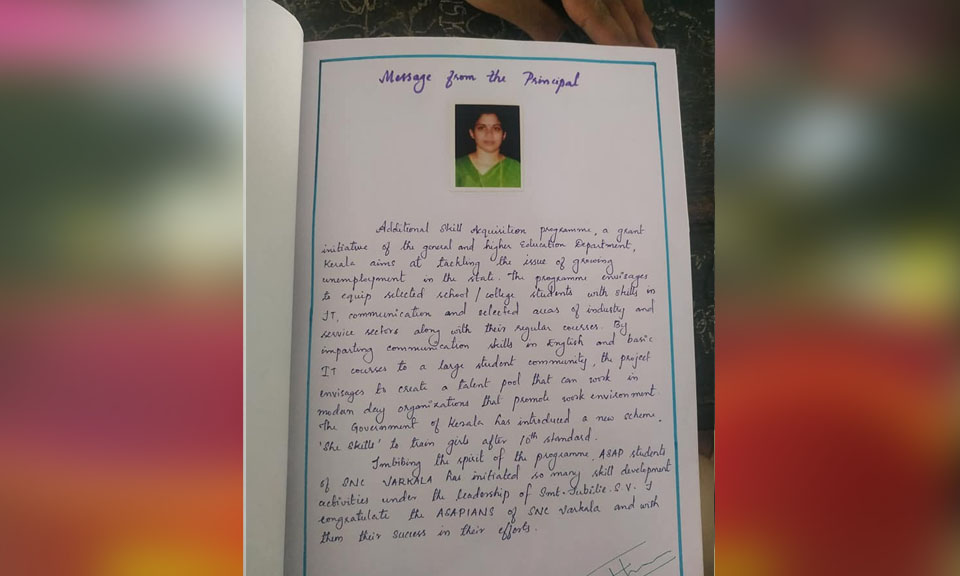 Message from the Principal
Additional Skill Acquisition programme, a grant
initiative of the general and higher Education Department,
Kerala aims at tackling the issue of growing
unemployment in the state. The programme envisages
to equip selected school / college students with skills in
IT, communication and selected areas of industry and
service sectors along with their regular courses. By
imparting communication skills in English and basic
IT courses to a large student community, the project
envisages to create a talent pool that can work in
modern day organizations that promote work environment.
The Government of Kerala has introduced a new scheme.
'She Skills' to train girls after 10th standard.
Imbibing the spirit of the programme, ASAP students
of SNC VARKALA has initiated so many skill development
activities under the leadership of Smt. Jubilie. S.V. I
congratulate the ASAPIANS of SNC Varkala and wish
them their success in their efforts.